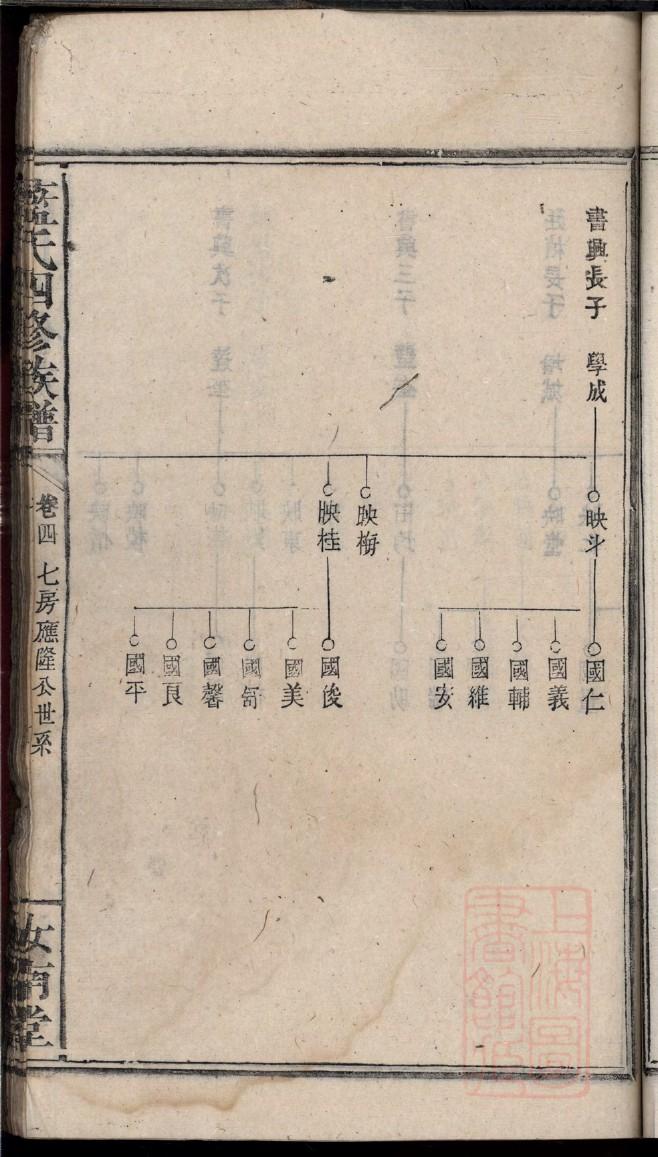 書興長子 學成
映斗
國仁
國義
國輔
國維
國安
映梅
映桂
國俊
國美
國舒
國馨
國良
國平
藍氏四修族譜
卷四 七房應隆公世系
汝南堂
上海圖
書館藏